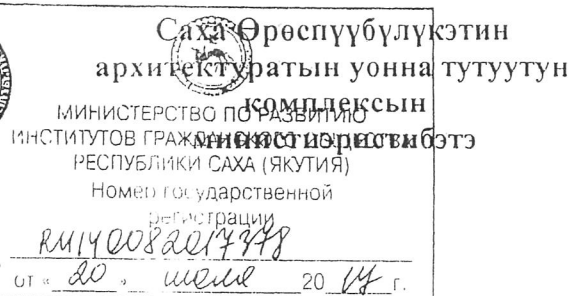 Саха Өрөспүүбүлүкэтин
архитектуратын уонна тутуутун
комплексын
миниистиэристибэтэ
МИНИСТЕРСТВО ПО РАЗВИТИЮ
ИНСТИТУТОВ ГРАЖДАНСКОГО ОБЩЕСТВА
РЕСПУБЛИКИ САХА (ЯКУТИЯ)
Номер государственной
регистрации
RU140082017378
от « 20 » июля 20 17 г.